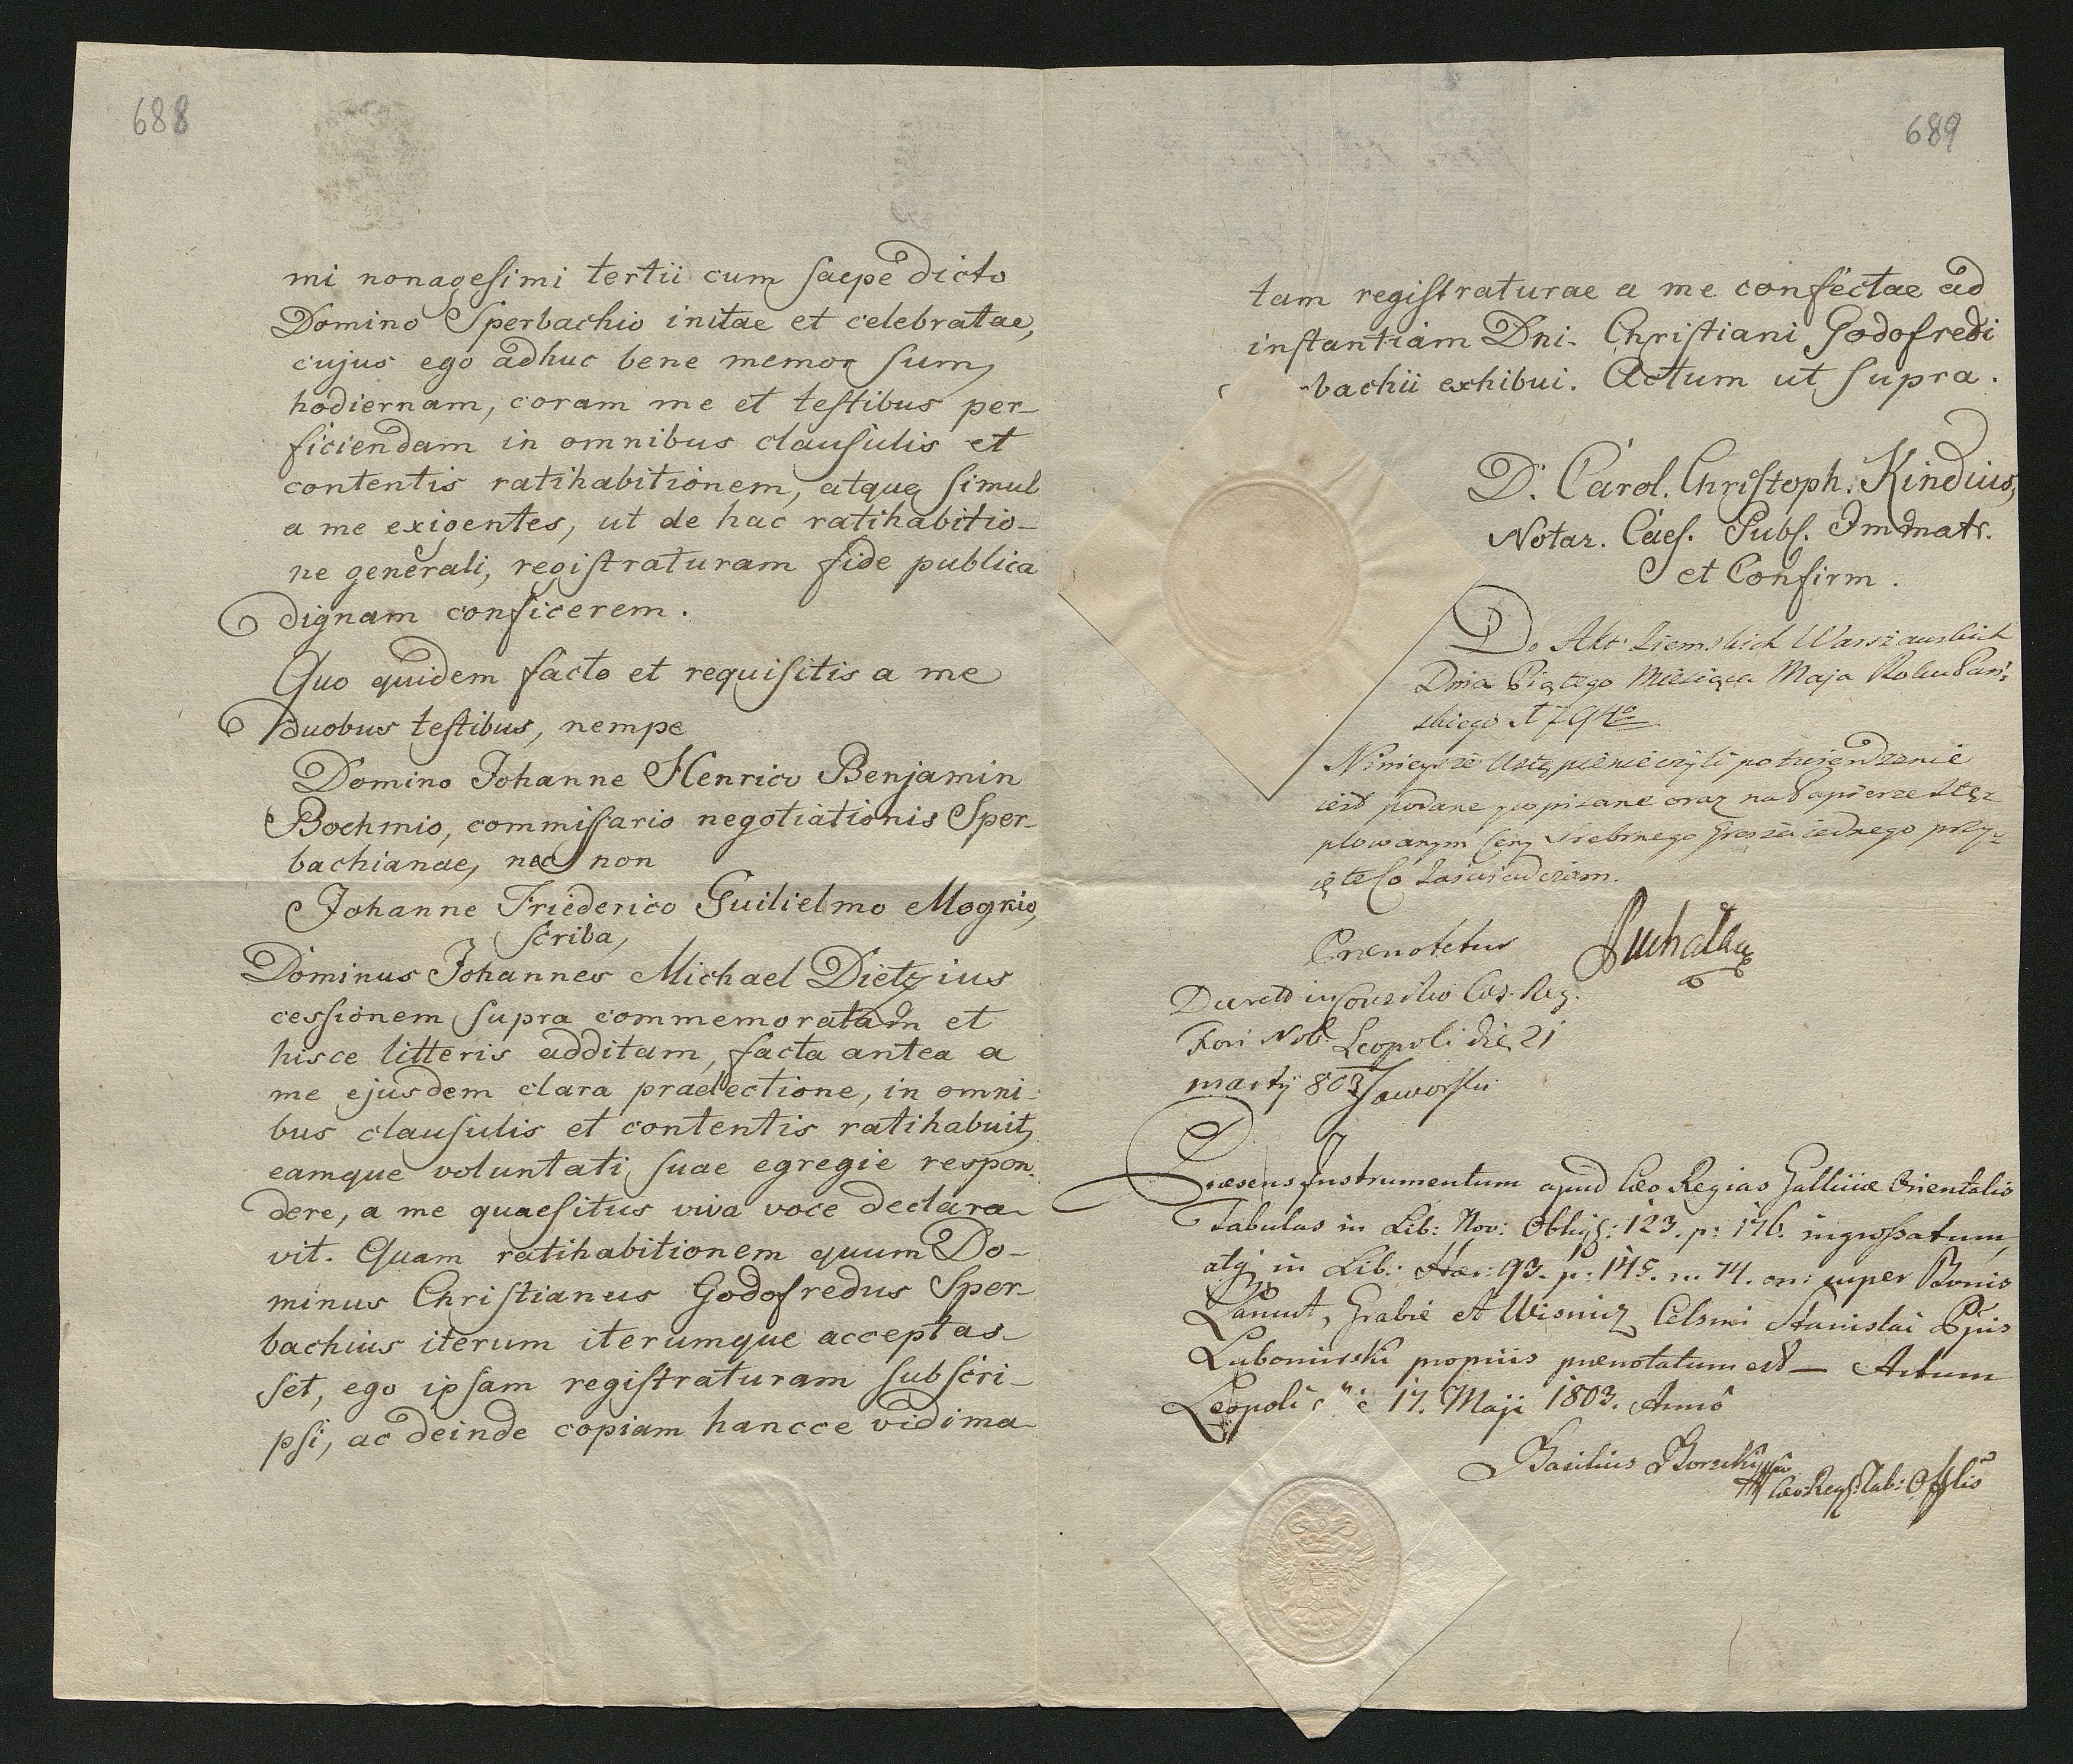 688
mi nonagesimi tertii cum saepe dicto
Domino Sperbachio initae et celebratae,
cujus ego adhuc bene memor sum,
hodiernam, coram me et testibus per-
ficiendam in omnibus clausulis et
contentis ratihabitionem, atque simul
a me exigentes, ut de hac ratihabitio-
ne generali, registraturam fide publica
dignam conficerem.
Quo quidem facto et requisitis a me
duobus testibus, nempe
Domino Johanne Henrico Benjamin
Boehmio, commissario negotiationis Sper-
bachianae, nec non
Johanne Friederico Guilielmo Mogkio,
scriba,
Dominus Johannes Michael Dietzius
cessionem supra commemoratam et
hisce litteris additam, facta antea a
me ejusdem clara praelectione, in omni-
bus clausulis et contentis ratihabuit,
eamque voluntati suae egregie respon-
dere, a me quaesitus viva voce declara-
vit. Quam ratihabitionem quum Do-
minus Christianus Godofredus Sper-
bachius iterum iterumque acceptas-
set, ego ipsam registraturam subscri-
psi, ac deinde copiam hancce vidima-
689
tam registraturae a me confectae ad
instantiam Dni. Christiani Godofredi
bachii exhibui. Actum ut supra.
D. Carol. Christoph. Kindius,
Notar. Caes. Publ. Immatr.
et Confirm.
Do Akt Ziemskich Warszawskich
Dnia Piątego Miesiąca Maja Roku Pań-
skiego 1794to
Ninieysze Ustąpienie czyli potwierdzenie
iest podane y wpisane oraz na Papierze Stę-
plowanym Ceny Srebrnego Grosza iednego przy-
ięte Co zaświadczam.
Prænotetur
Decreto in Consilio Cæs. Reg.
Fori Nob. Leopoli die 21
martij 803 Jaworski
Præsens Instrumentum apud Cæo Regias Galliciæ Orientalis
Tabulas in Lib: Nov: Oblig: 123. p: 176. ingrossatum,
atq in Lib: Hær: 93. p: 145. n. 74. on: super Bonis
Łancut, Grabie et Wisnicz Celsmi Stanislai Ppis
Lubomirski propriis prænotatum est — Actum
Leopoli 17. Maji 1803. Anno
Basilius
Cæo: Reg: Tab: Offlis